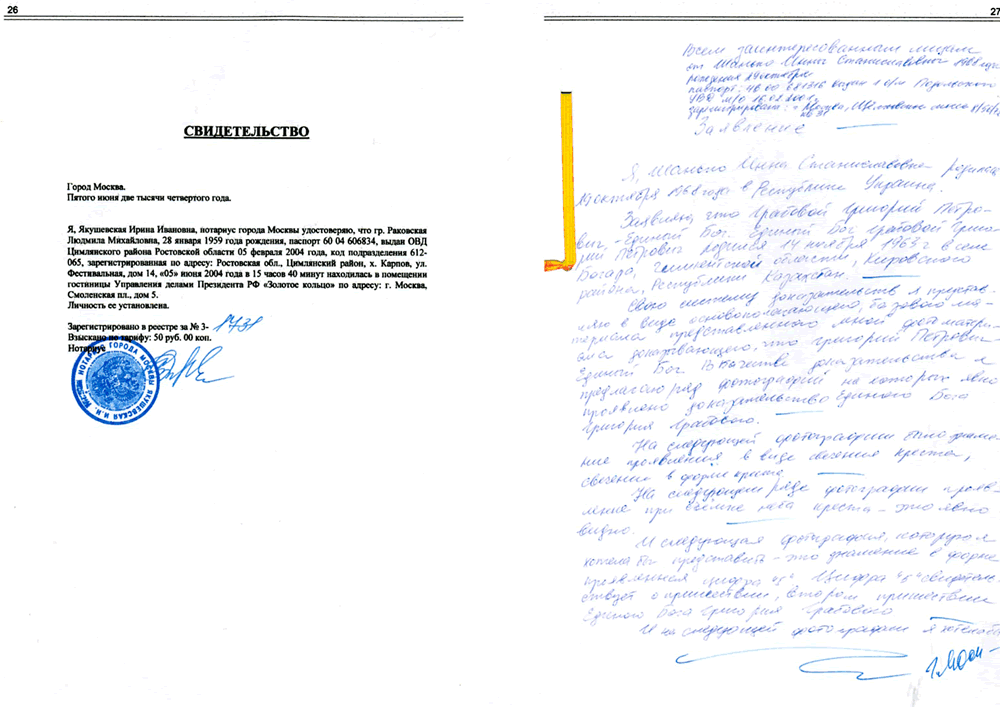 26
СВИДЕТЕЛЬСТВО
Город Москва.
Пятого июня две тысячи четвертого года.
Я, Якушевская Ирина Ивановна, нотариус города Москвы удостоверяю, что гр. Раковская
Людмила Михайловна, 28 января 1959 года рождения, паспорт 60 04 606834, выдан ОВД
Цимлянского района Ростовской области 05 февраля 2004 года, код подразделения 612-
065, зарегистрированная по адресу: Ростовская обл., Цимлянский район, х. Карпов, ул.
Фестивальная, дом 14, «05» июня 2004 года в 15 часов 40 минут находилась в помещении
гостиницы Управления делами Президента РФ «Золотое кольцо» по адресу: г. Москва,
Смоленская пл., дом 5.
Личность ее установлена.
Зарегистрировано в реестре за № 3-1731
Взыскано по тарифу: 50 руб. 00 коп.
Нотариус
НОТАРИУС ГОРОДА МОСКВЫ ЯКУШЕВСКАЯ И.И.
27
Всем заинтересованным лицам
от Манько Инны Станиславовны 1968 года
рождения 19 октября
паспорт: 46 00 выдан Подольского
УВД М/О 16.02.2001г.
зарегистрирована: г. Москва,
кв 31
Заявление
Я, Манько Инна Станиславовна родилась
19 октября 1968 года в Республике Украина.
Заявляю, что Грабовой Григорий Петро-
вич, - Единый Бог. Единый Бог Грабовой Григо-
рий Петрович родился 14 ноября 1963г в селе
Богара, Чимкентской области, Кировского
района, Республики Казахстан.
Свою систему доказательств я представ-
ляю в виде основополагающего, базового ма-
териала представленного мной фотоматери-
ала доказывающего, что Григорий Петрович
Единый Бог. В качестве доказательства я
предлагаю ряд фотографий на которых явно
проявлено доказательство Единого Бога
Григория Грабового.
На следующей фотографии было знаме-
ние проявления в виде свечения креста,
свечение в форме креста.
На следующем ряде фотографии прояв-
ление при съемке неба креста - это явно
видно.
И следующая фотография, которую я
хотела бы представить - это знамение в форме
проявленная цифра "5". Цифра "5" свидетель-
ствует о пришествии, втором пришествии
Единого Бога Григория Грабового
И на следующей фотографии я хотела бы